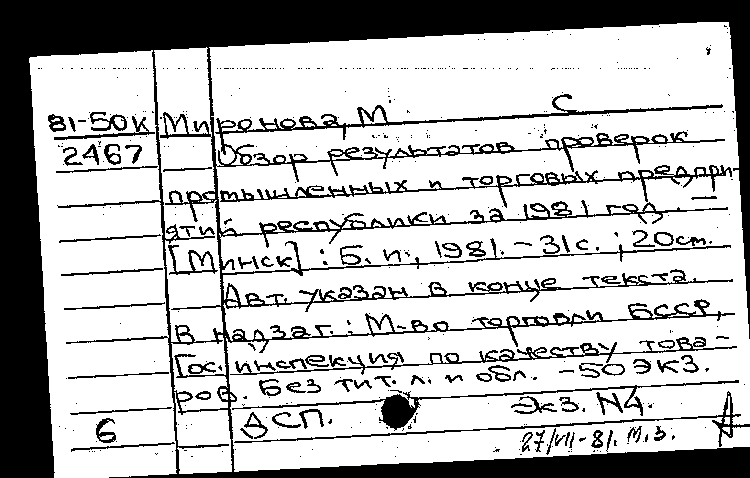 С
81-50К Миронова, М
2467 Обзор результатов проверок
промышленных и торговых предпри-
ятий республики за 1981 год. —
[Минск] : Б. и., 1981. – 31 с. ; 20 см.
Авт. указан в конце текста.
В надзаг. : М-во торговли БССР,
Гос. инспекция по качеству това-
ров. Без тит. л. и обл. – 50 экз.
6 ДСП. Экз. N4.
27/VII-81. М.З.